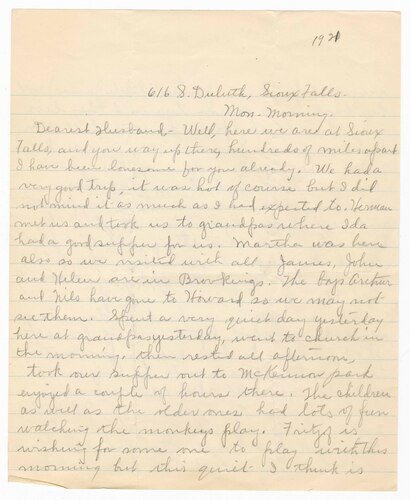 1921
616 S. Duluth, Sioux Falls.
Mon. Morning.
Dearest Husband,- Well, here we are at Sioux
Falls, and you way up there, hundreds of miles apart
I have been lonesome for you already. We had a
very good trip, it was hot of course but I did
not mind it as much as I had expected to. Herman
met us and took us to grandpas where Ida
had a good supper for us. Martha was here
also so we visited with all James, John
and Helen are in Brookings. The boys Arthur
and Nils have gone to Howard so we may not
see them. Spent a very quiet day yesterday
here at grandpas yesterday, went to church in
the morning, then rested all afternoon,
took our supper out to McKennon park
enjoyed a couple of hours there. The children
as well as the older ones had lots of fun
watching the monkeys play. Fritz is
wishing for some one to play with this
morning but this quiet I think is